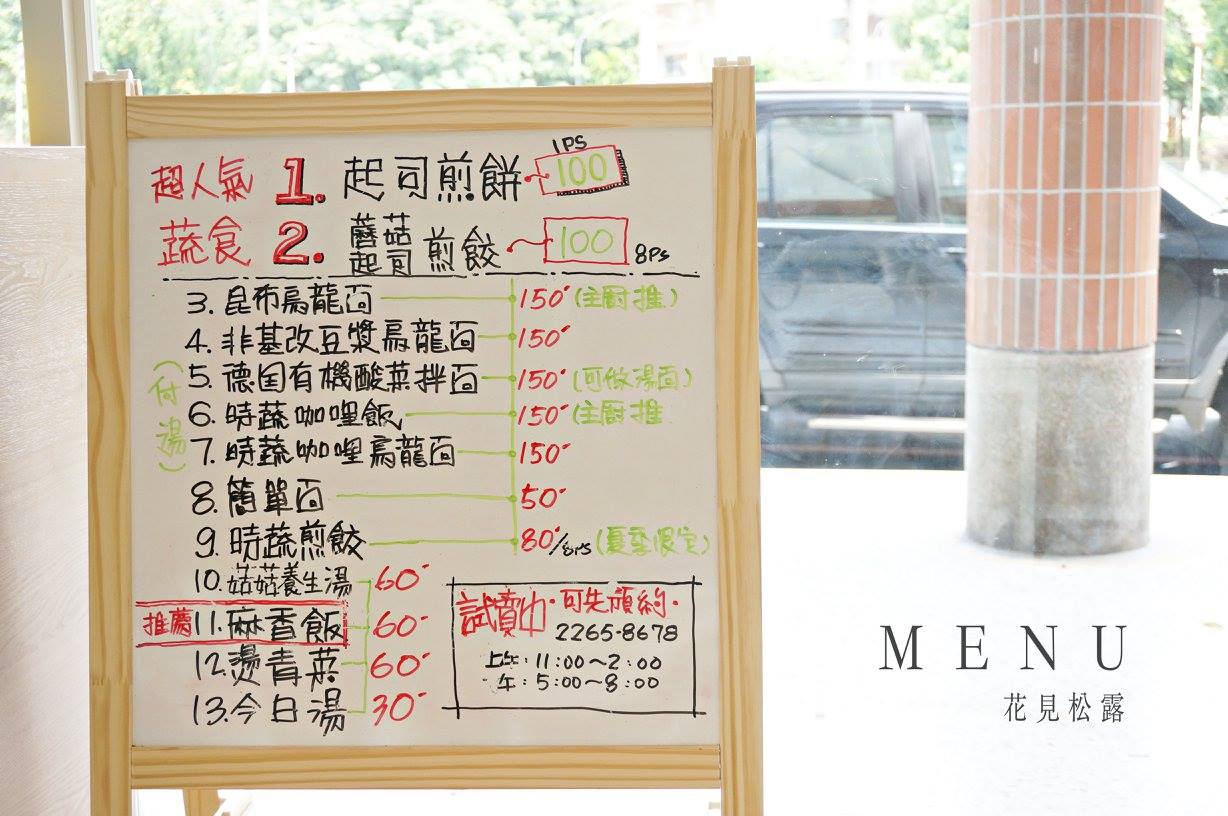 超人氣 1. 起司煎餅 1PS 100
蔬食 2. 蘑菇起司煎餃 100 8Ps
3. 昆布烏龍面 150 (主厨推)
4. 非基改豆漿烏龍面 150
5. 德国有機酸菜拌面 150 (可做湯面)
6. 時蔬咖哩飯 150 (主厨推
7. 時蔬咖哩烏龍面 150
(付湯)
8. 簡單面 50
9. 時蔬煎餃 80/8PS (夏季限定)
10. 菇菇養生湯 60
推薦 11. 麻香飯 60
12. 燙青菜 60
13. 今日湯 30
試賣中·可先預約·
2265-8678
上午:11:00~2:00
午:5:00~8:00
MENU
花見松露